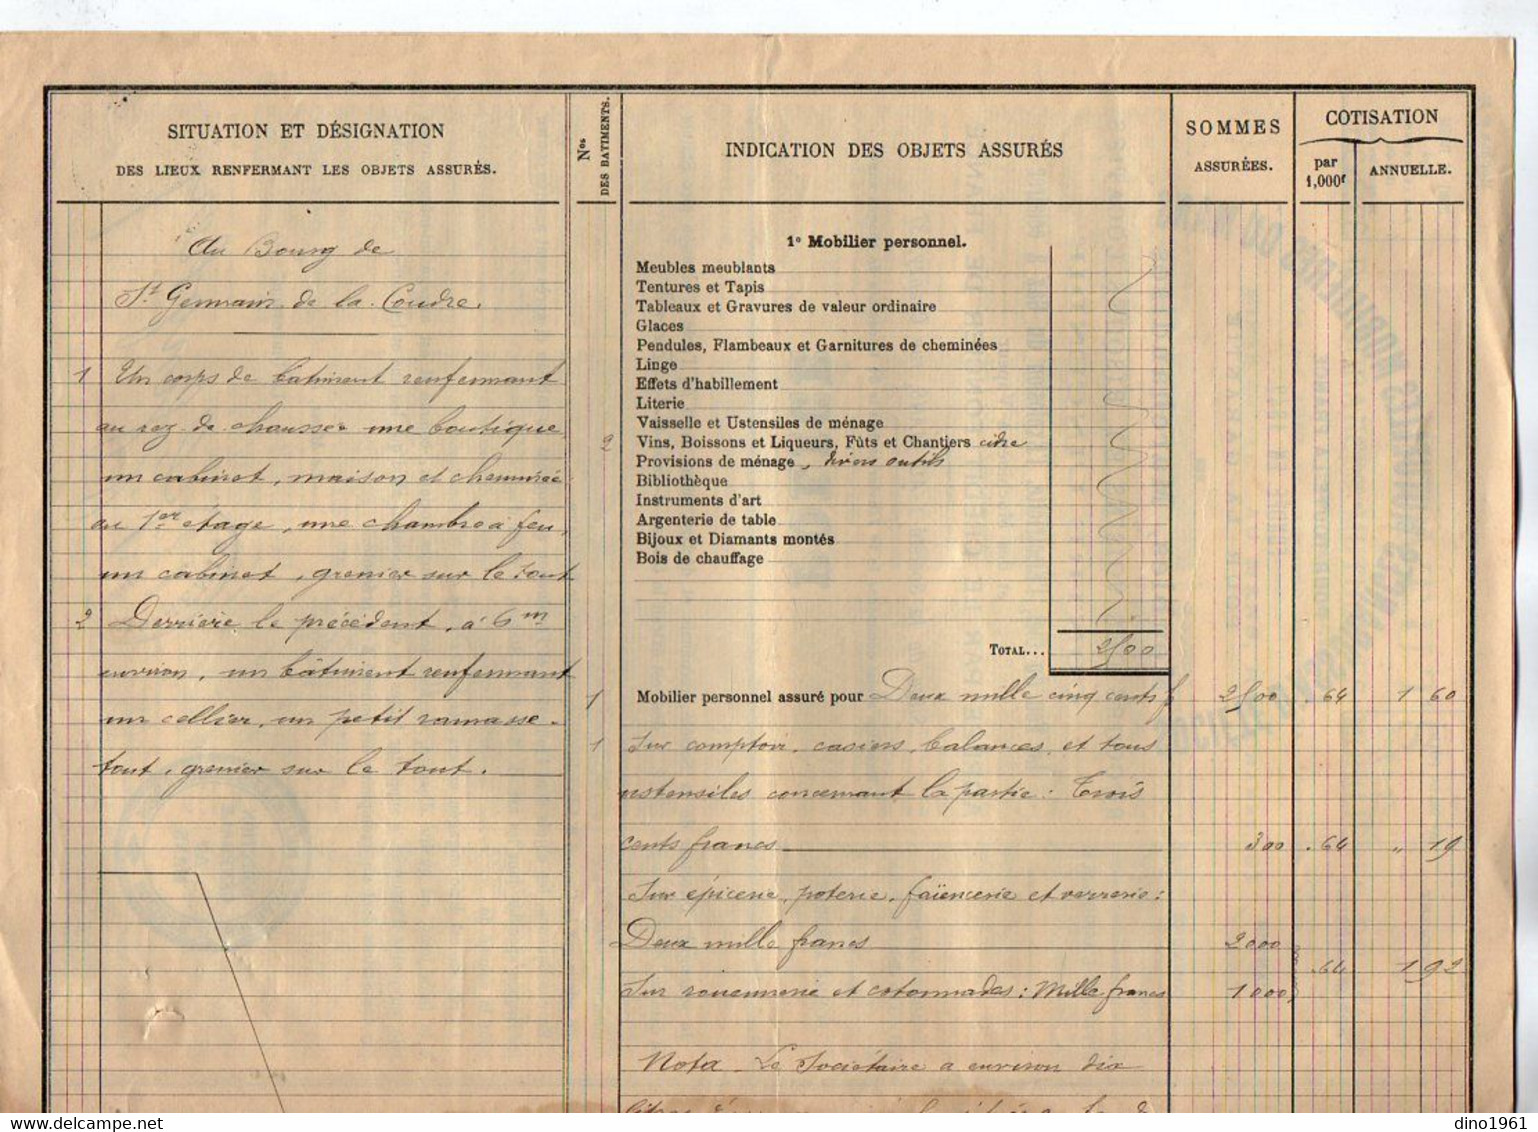 SITUATION ET DÉSIGNATION
DES LIEUX RENFERMANT LES OBJETS ASSURÉS.
Nos DES BATIMENTS.
INDICATION DES OBJETS ASSURÉS
SOMMES
ASSURÉES.
COTISATION
par
1,000f
ANNUELLE.
Au Bourg de
St Germain de la Coudre.
1 Un corps de bâtiment renfermant
au rez de chaussée une boutique
un cabinet, maison et cheminée
au 1er étage, une chambre à feu,
un cabinet, grenier sur le tout
2 Derrière le précédent, à 6m
environ, un bâtiment renfermant
un cellier, un petit ramasse-
tout, grenier sur le tout.
1° Mobilier personnel.
Meubles meublants
Tentures et Tapis
Tableaux et Gravures de valeur ordinaire
Glaces
Pendules, Flambeaux et Garnitures de cheminées
Linge
Effets d'habillement
Literie
Vaisselle et Ustensiles de ménage
2 Vins, Boissons et Liqueurs, Fûts et Chantiers cidre
Provisions de ménage, divers outils
Bibliothèque
Instruments d'art
Argenterie de table
Bijoux et Diamants montés
Bois de chauffage
TOTAL... 2500
1 Mobilier personnel assuré pour Deux mille cinq cents f 2500 .64 1 60
1 Sur comptoir, casiers, balances, et tous
ustensiles concernant la partie : Trois
cents francs 300 .64 " 19
Sur épicerie, poterie, faïencerie et verrerie :
Deux mille francs 2000
.64 1 92
Sur rouennerie et cotonnades : Mille francs 1000
Nota _ Le Sociétaire a environ dix
litres
dino1961